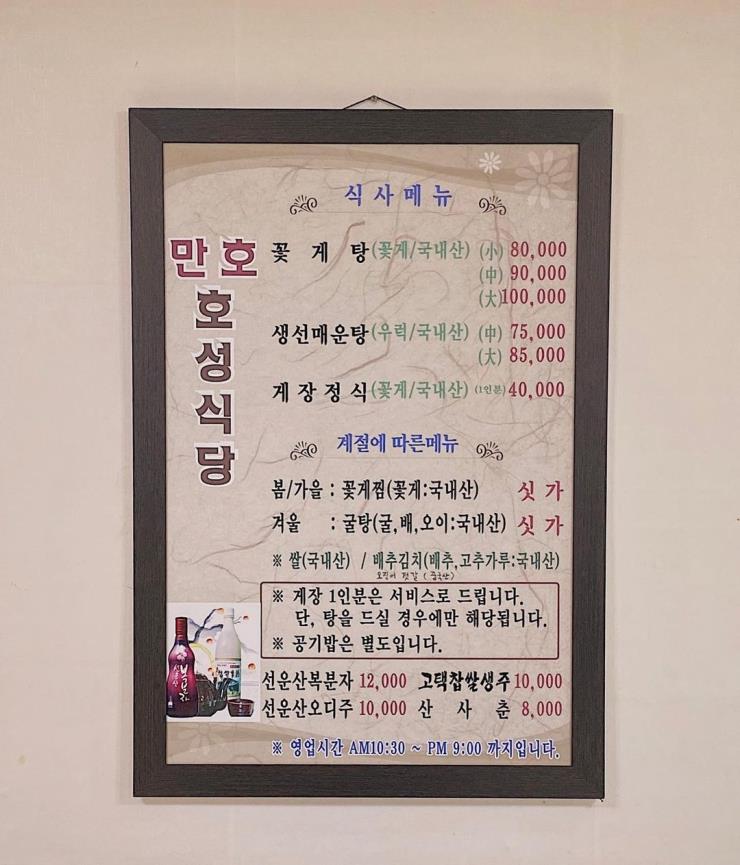 식사메뉴
만호
호성식당
꽃게탕(꽃게/국내산) (小) 80,000
(中) 90,000
(大)100,000
생선매운탕(우럭/국내산) (中) 75,000
(大) 85,000
게장정식(꽃게/국내산) (1인분)40,000
계절에 따른메뉴
봄/가을 : 꽃게찜(꽃게:국내산) 싯가
겨울 : 굴탕(굴,배,오이:국내산) 싯가
※ 쌀(국내산) / 배추김치(배추,고추가루:국내산)
오징어 젓갈 (중국산)
※ 게장 1인분은 서비스로 드립니다.
단, 탕을 드실 경우에만 해당됩니다.
※ 공기밥은 별도입니다.
선운산복분자 12,000 고택찹쌀생주 10,000
선운산오디주 10,000 산사춘 8,000
※ 영업시간 AM10:30 ~ PM 9:00 까지입니다.